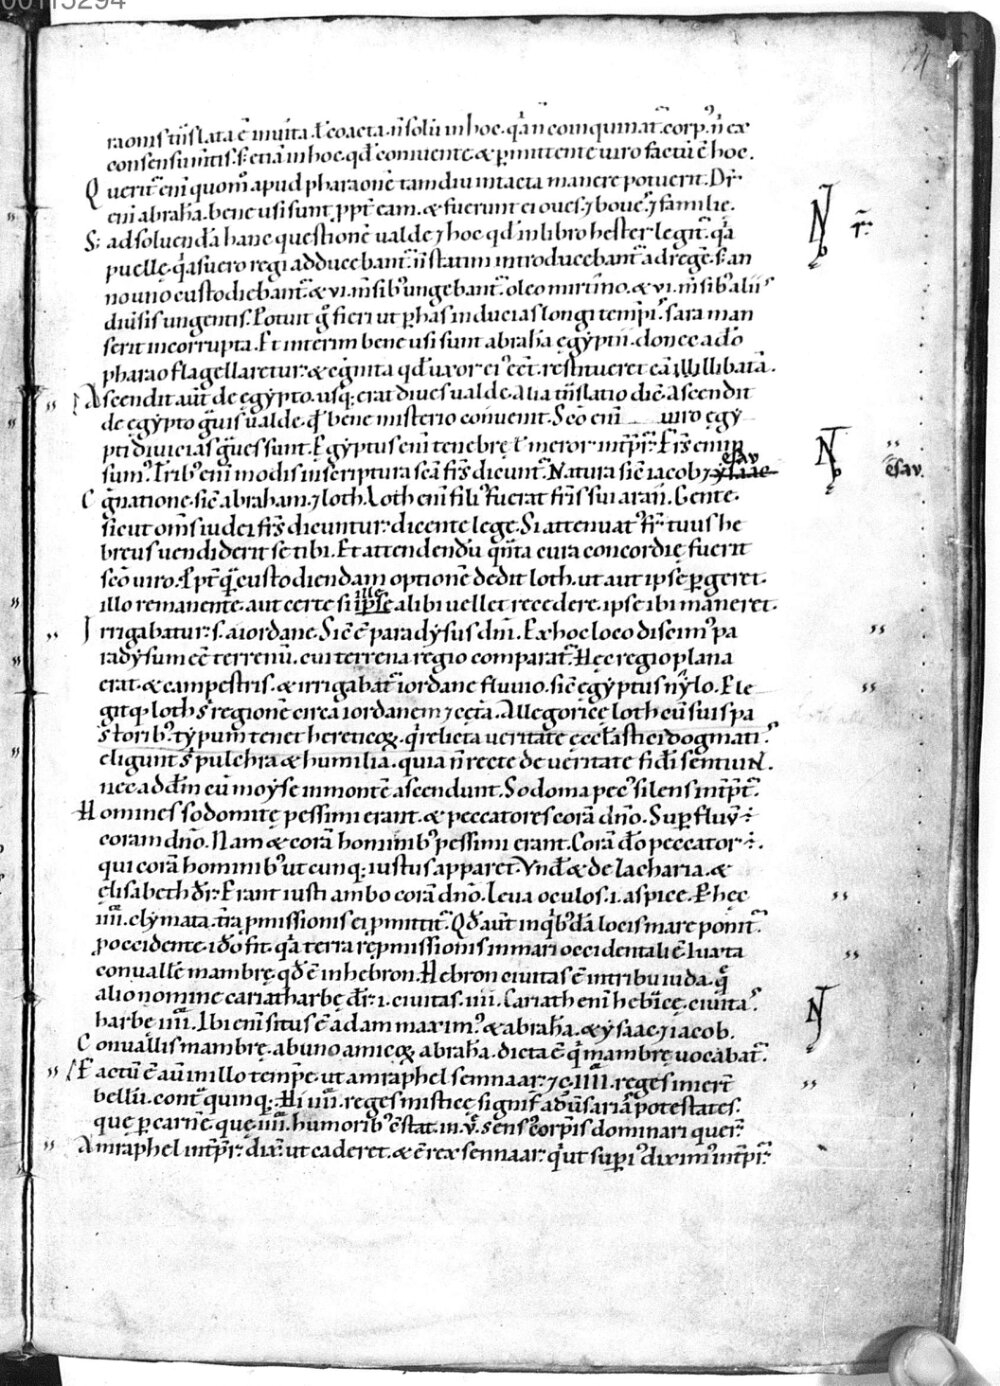 00115294
24
raonis t̄nslata ē inuita. ł coacta. ñ solū in hoc. q̄a ñ coinquinat̄ corp⁹. ñ ex
consensu m̄tis. s; etiā in hoc. qđ conniuente. & p̄mittente uiro factū ē hoc.
Querit̄ eni quom̊ apud pharaonē tamdiu intacta manere potuerit. Dr̄
eni abrahā. bene usi sunt ꝓpt̄ eam. & fuerunt ei oues. ⁊ boues. ⁊ familie.
S; ad soluendā hanc questionē ualde ⁊ hoc qđ in libro hester legit̄. q̄a
puellę. q̄ asuero regi adducebant̄. ñ statim introducebant̄ ad regē. s; an
no uno custodiebant̄. & vi. m̄sib⁹ ungebant̄ oleo mirtino. & vi. m̄sib⁹ aliis
diu͛sis ungentis. Potuit g̊ fieri ut p̄ has inducias longi tempr̄is. sara man
serit incorrupta. Et interim bene usi sunt abrahā ęgẏptii. donec a do͂
pharao flagellaretur. & cg̊nita qđ uxor ei⁹ ēēt. restitueret eā illi illibatā.
Ascendit aut̄ de ęgẏpto. usq;. erat diues ualde. Alia t̄nslatio dič. Ascendit
de ęgẏpto g̊uis ualde. qđ bene misterio conuenit. Sc̄o eni uiro ęgẏ
pti diuicias g̊ues sunt. Ęgẏptus eni tenebrę ł meror int̄pr̄. Fr̄s eni
sum⁹. Trib⁹ eni modis in scriptura sc̄a fr̄s dicunt̄. Natura sic iacob ⁊ ysaac
esau
esau.
Cg̊natione. sic abraham. ⁊ loth. Loth eni fili⁹ fuerat fr̄is sui aran. Gente.
sicut om̄s iudei fr̄s dicuntur. dicente lege. Si attenuat⁹ fr̄ tuus he
breus uendiderit se tibi. Et attendendū q̄nta cura concordię fuerit
sc̄o uiro. Ꝓpt̄ q̄ custodiendam optionē dedit loth. ut aut ipse p̄geret.
illo remanente. aut certe si ipse alibi uellet recedere. ipse ibi maneret.
ille
Irrigabatur. s. a iordane. Sic ē paradẏsus dn̄i. Ex hoc loco discim⁹ pa
radẏsum ēē terrenū. cui terrena regio comparat̄. Hęc regio plana
erat. & campestris. & irrigabat̄ iordane fluuio. sic ęgẏptus nẏlo. Ele
gitq; loth s̄ regionē circa iordanem ⁊ cęt̄a. Allegoricę loth cū suis pa
storib⁹. tẏpum tenet hereticoꝝ. q̄ relicta ueritate ęcclastici dogmatis.
eligunt s̄ pulchra & humilia. quia ñ recte de ueritate fidei sentiunt.
nec ad dn̄m cū moẏse in montē ascendunt. Sodoma pec⁹ silens int̄pt̄.
Homines sodomitę pessimi erant. & peccatores corā dn̄o. Sup̄fluẏ ÷
coram dn̄o. Nam & corā hominib⁹ pessimi erant. Corā do͂ peccator ÷.
qui corā hominib⁹ utcunq;. iustus apparet. Vnđ & de zacharia. &
ęlisabeth dr̄. Erant iusti ambo corā dn̄o. Leua oculos. i. aspice. Ꝑ hęc
iiii. clẏmata. t̄ra ꝓmissionis ei ꝓmittit̄. Qđ aut̄ in q̄b⁹dā locis mare ponit̄.
ꝓ occidente. ido͂ fit. q̄a terra reꝓmissionis in mari occidentali ē. Iuxta
conuallē mambrę. qđ ē in hebron. Hebron ciuitas ē in tribu iuda. q̄
alio nomine cariatharbę dr̄. i. ciuitas. iiii. Cariath eni hebraicę. ciuitas.
harbę iiii. Ibi eni situs ē adam maxim⁹. & abrahā. & ẏsaac. ⁊ iacob.
Conuallis mambrę. ab uno amicoꝝ abrahā. dicta ē. q̄ mambrę uocabat̄.
Factū ē aū in illo tempr̄e. ut amraphel sennaar. ⁊ c̄. IIII. reges inirent
bellū. cont̄ quinq;. Hi iiii. reges misticę signif̄ adu͛sarias potestates.
quę p̄ carnē. quę iiii. humorib⁹ c̄stat. in. v. sens⁹ corp̄is dominari querunt̄
Amraphel int̄pr̄. dixit. ut caderet. & ē rex sennaar. q̄ ut sup̄i⁹ dixim⁹. int̄pr̄